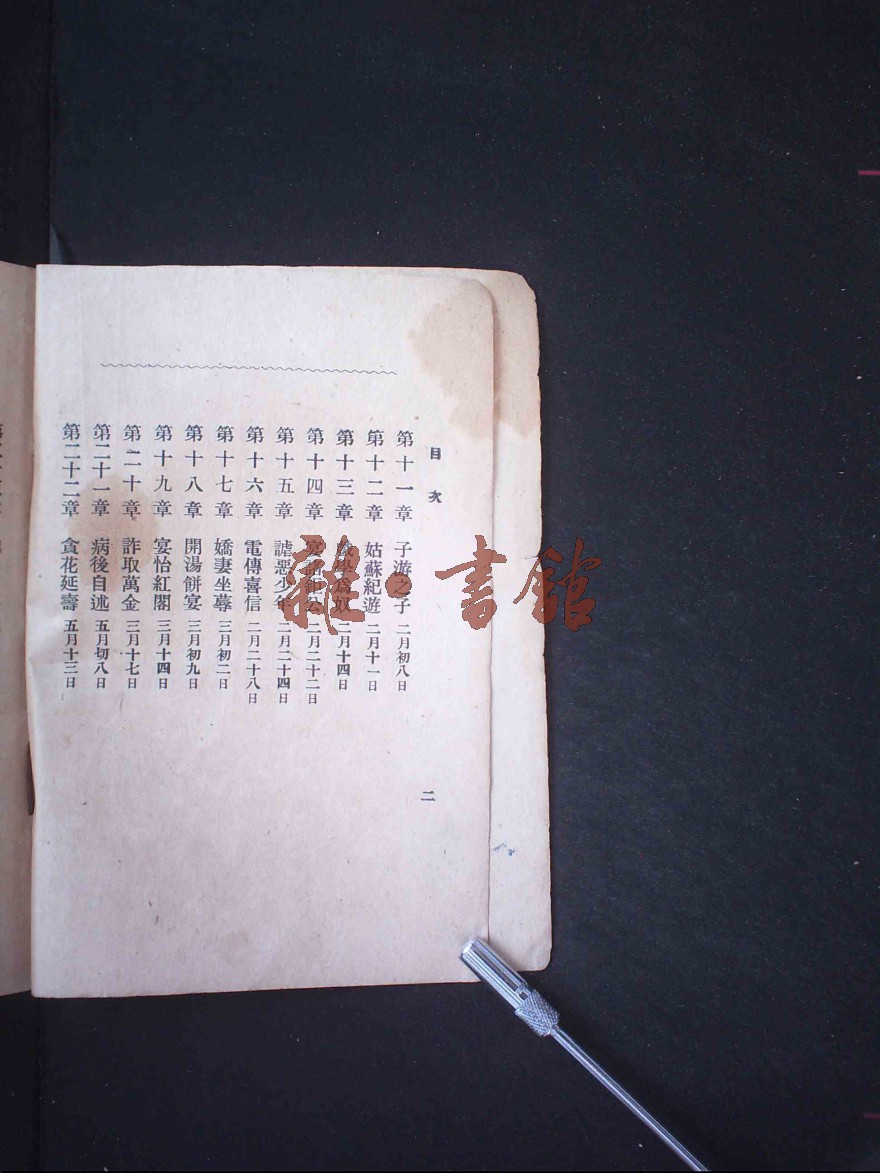 目次
第十一章 子游之子 二月初八日
第十二章 姑蘇紀遊 二月十一日
第十三章 學爲奴 二月十四日
第十四章 宴 二月二十二日
第十五章 謔惡少年 二月二十四日
第十六章 電傳喜信 二月二十八日
第十七章 嬌妻坐蓐 三月初二日
第十八章 開湯餅宴 三月初九日
第十九章 宴怡紅閣 三月十四日
第二十章 詐取萬金 三月十七日
第二十一章 病後自述 五月切八日
第二十二章 貪花延壽 五月十三日
二
雜·書館